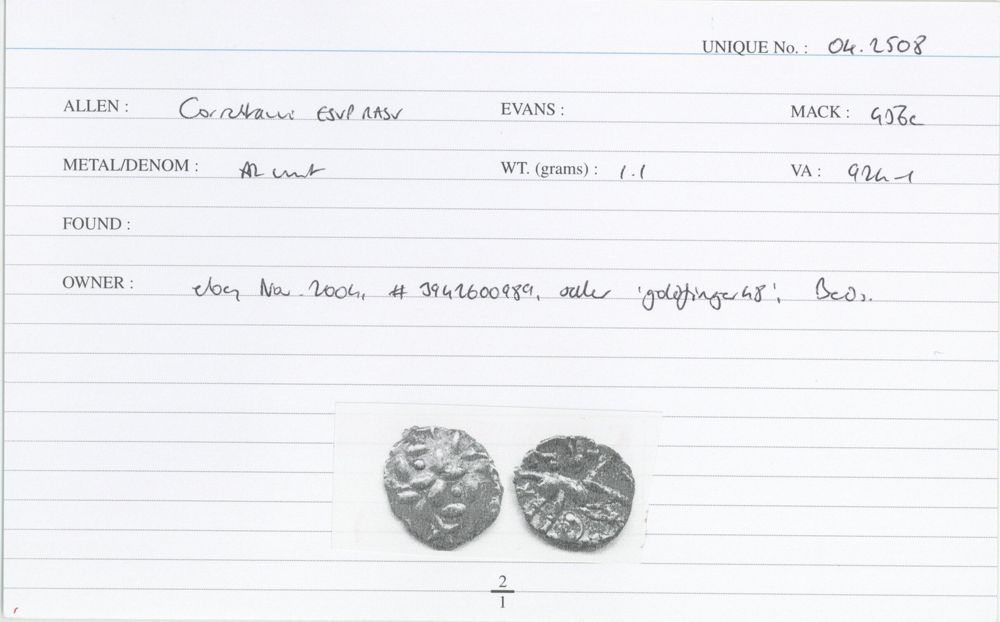 UNIQUE No. : 04.2508
ALLEN : Corieltauvi ESVP RASV EVANS : MACK : 456c
METAL/DENOM : AR unit WT. (grams) : 1.1 VA : 924-1
FOUND :
OWNER : ebay Nov. 2004, # 3942600989, seller 'goldfinger48', Beds.
2
1